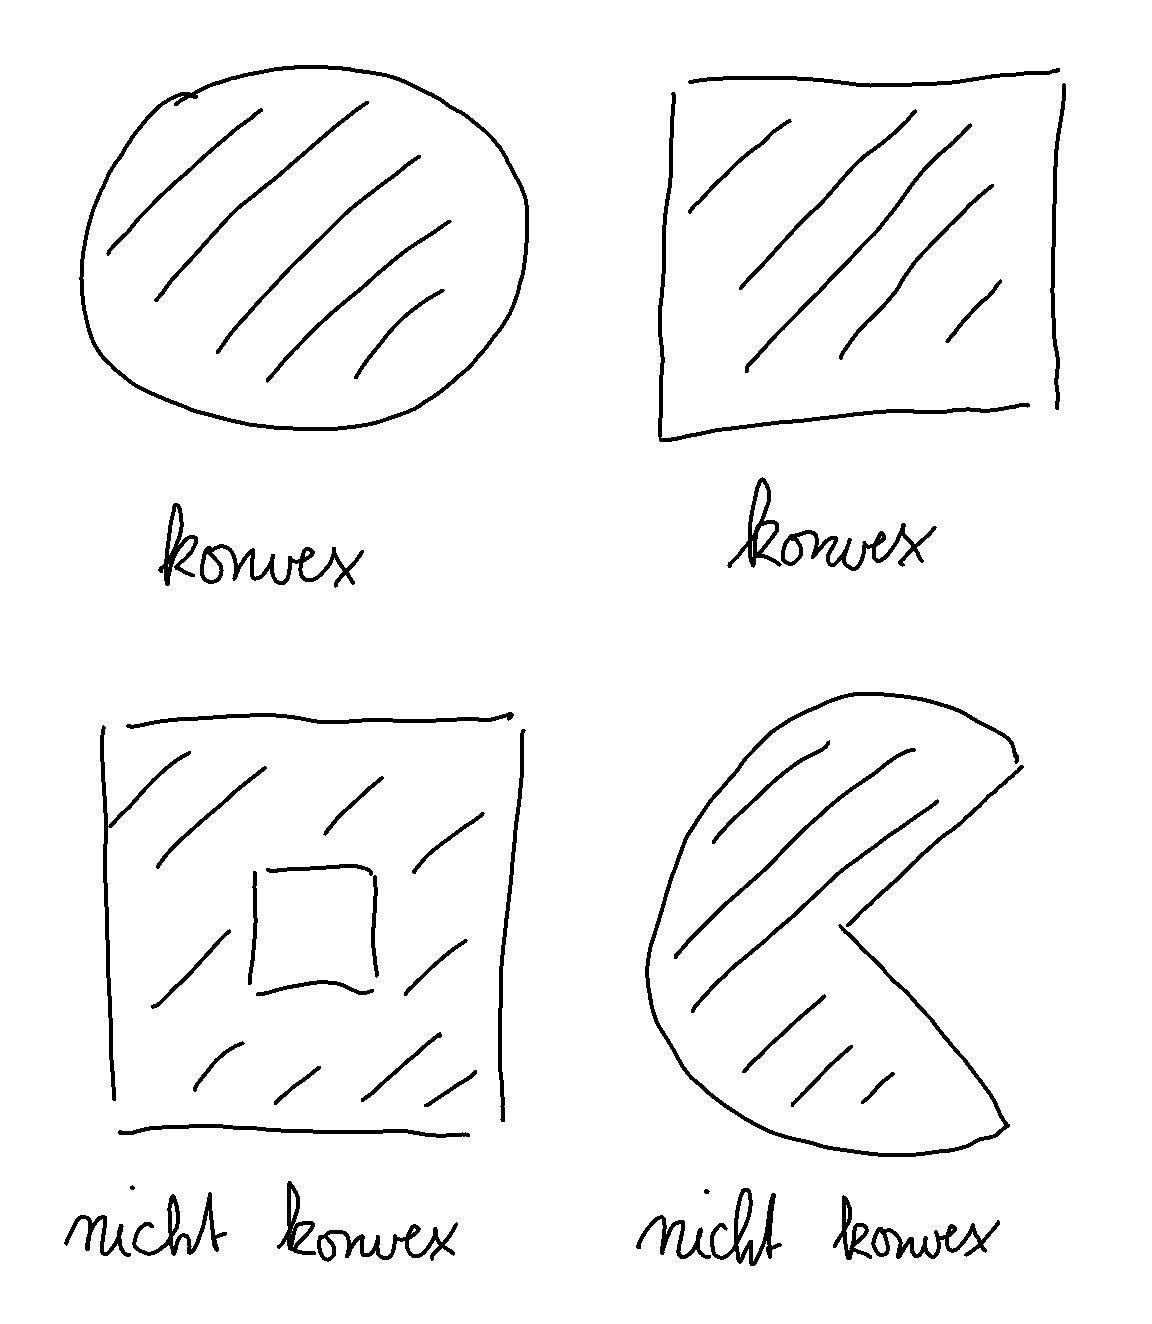 konvex
konvex
nicht konvex
nicht konvex